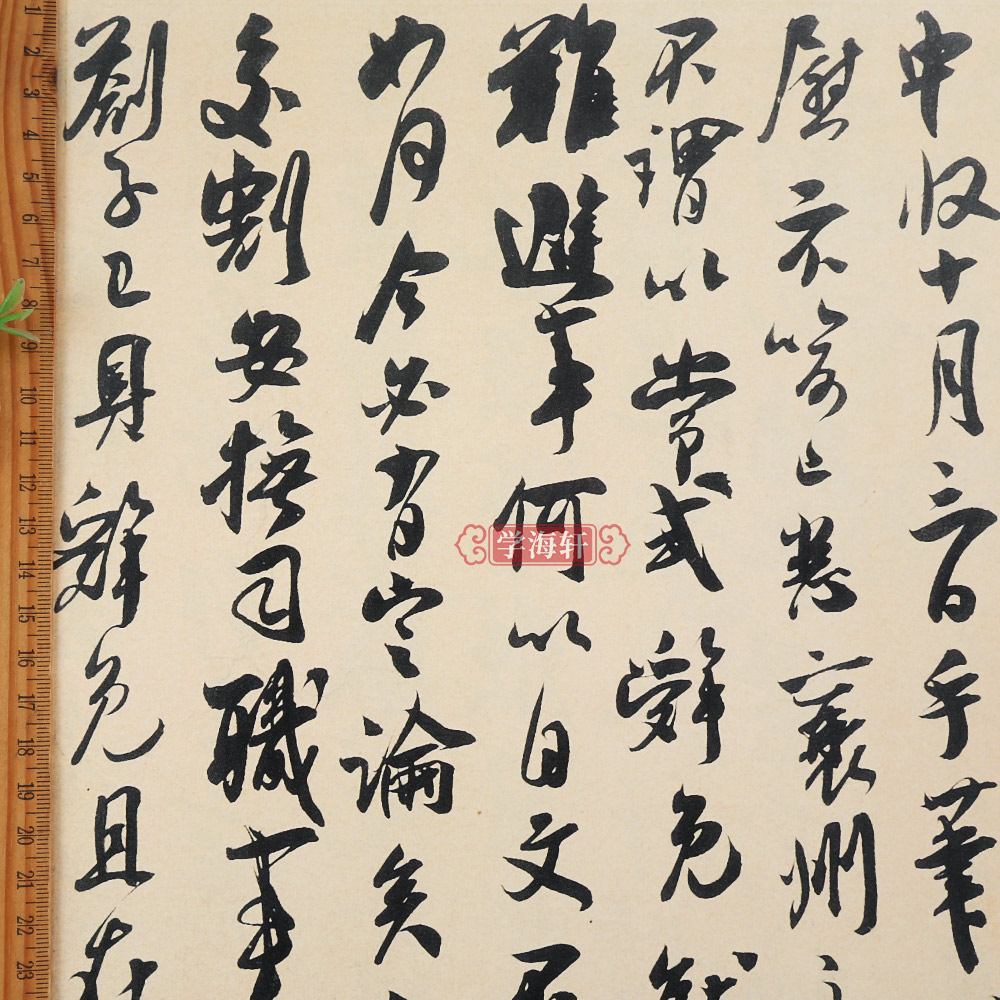 中收十月三日手筆
慰示喻已悉襄州
不謂以常式辭免
難進事何以自文不
如何今必有定論矣
交割安撫司職事
劄子已具辭免且在
学海轩
1 2 3 4 5 6 7 8 9 10 11 12 13 14 15 16 17 18 19 20 21 22 23